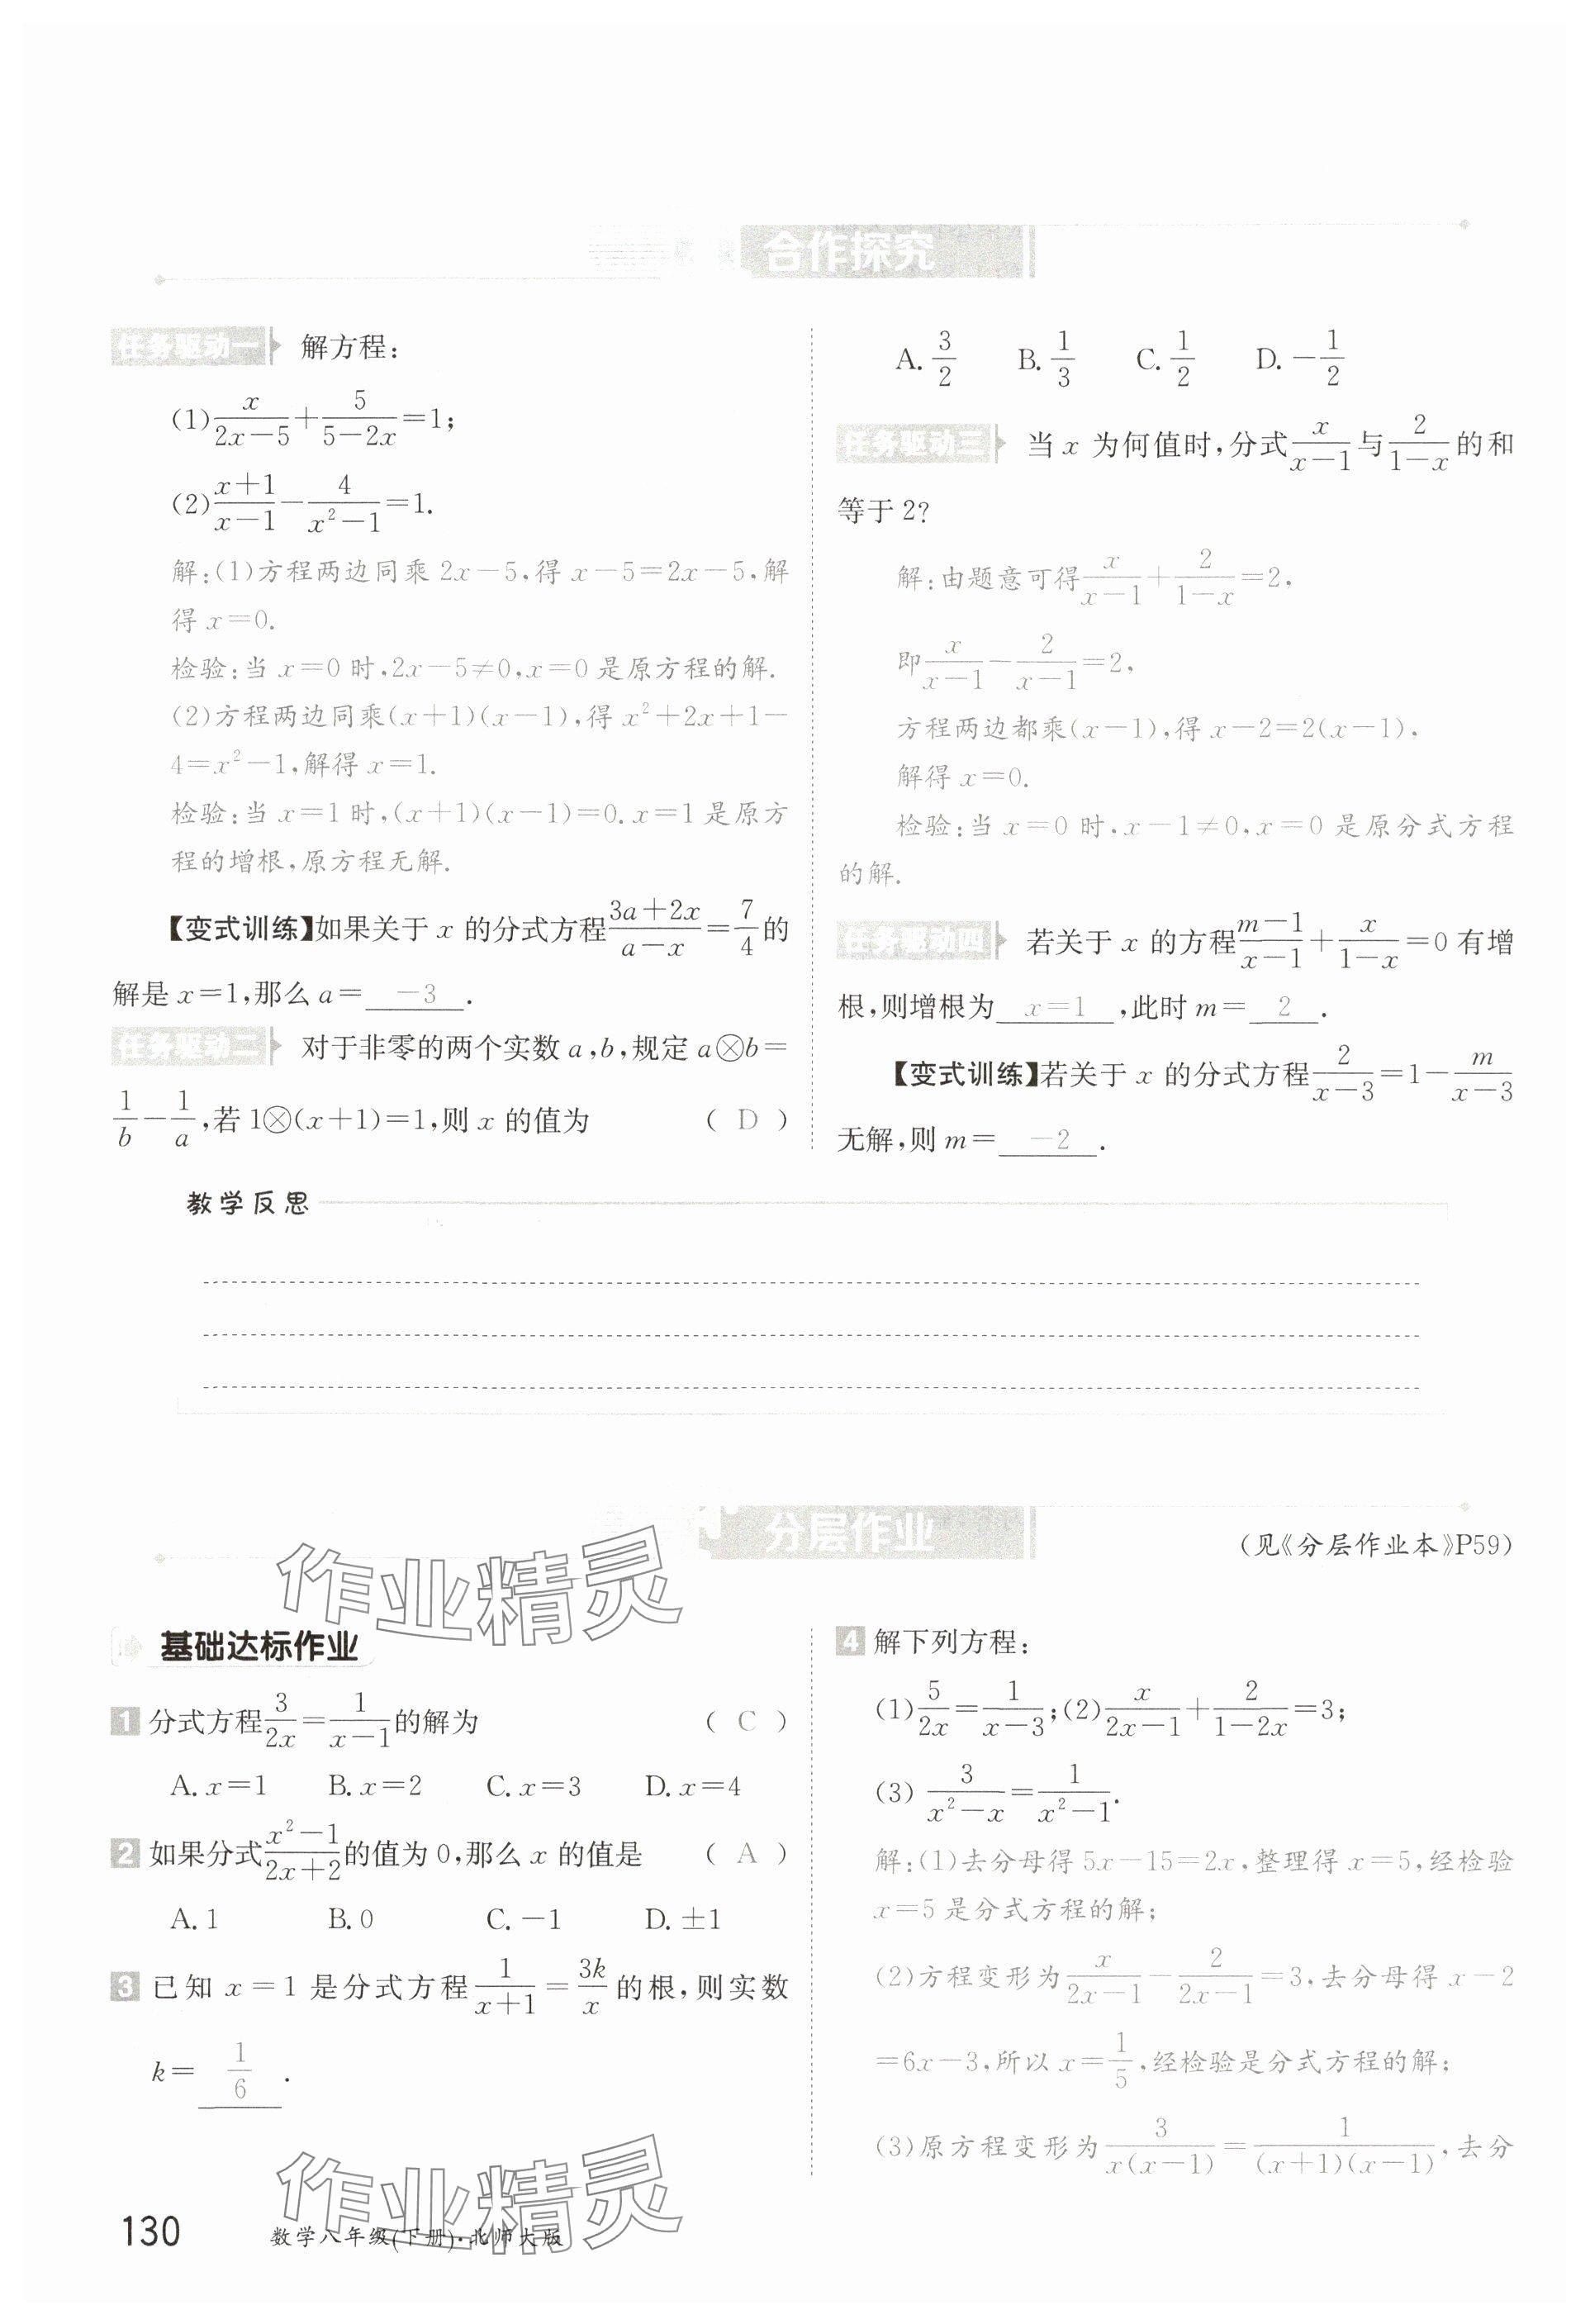 合作探究
任务驱动一 解方程：
(1) x/(2x−5) + 5/(5−2x) =1；
(2) (x+1)/(x−1) − 4/(x²−1) =1.
解：(1)方程两边同乘 2x−5，得 x−5=2x−5，解
得 x=0.
检验：当 x=0 时，2x−5≠0，x=0 是原方程的解.
(2)方程两边同乘(x+1)(x−1)，得 x²+2x+1−
4=x²−1，解得 x=1.
检验：当 x=1 时，(x+1)(x−1)=0. x=1 是原方
程的增根，原方程无解.
【变式训练】如果关于 x 的分式方程 (3a+2x)/(a−x) = 7/4 的
解是 x=1，那么 a= −3 .
任务驱动二 对于非零的两个实数 a，b，规定 a⊗b=
1/b − 1/a，若 1⊗(x+1)=1，则 x 的值为 ( D )
A. 3/2 B. 1/3 C. 1/2 D. −1/2
任务驱动三 当 x 为何值时，分式 x/(x−1) 与 2/(1−x) 的和
等于 2？
解：由题意可得 x/(x−1) + 2/(1−x) =2，
即 x/(x−1) − 2/(x−1) =2，
方程两边都乘(x−1)，得 x−2=2(x−1)，
解得 x=0.
检验：当 x=0 时，x−1≠0，x=0 是原分式方程
的解.
任务驱动四 若关于 x 的方程 (m−1)/(x−1) + x/(1−x) =0 有增
根，则增根为 x=1 ，此时 m= 2 .
【变式训练】若关于 x 的分式方程 2/(x−3) =1− m/(x−3)
无解，则 m= −2 .
教学反思
分层作业
（见《分层作业本》P59）
基础达标作业
1 分式方程 3/(2x) = 1/(x−1) 的解为 ( C )
A. x=1 B. x=2 C. x=3 D. x=4
2 如果分式 (x²−1)/(2x+2) 的值为 0，那么 x 的值是 ( A )
A. 1 B. 0 C. −1 D. ±1
3 已知 x=1 是分式方程 1/(x+1) = 3k/x 的根，则实数
k= 1/6 .
4 解下列方程：
(1) 5/(2x) = 1/(x−3)；(2) x/(2x−1) + 2/(1−2x) =3；
(3) 3/(x²−x) = 1/(x²−1).
解：(1)去分母得 5x−15=2x，整理得 x=5，经检验
x=5 是分式方程的解；
(2)方程变形为 x/(2x−1) − 2/(2x−1) =3，去分母得 x−2
=6x−3，所以 x= 1/5，经检验是分式方程的解；
(3)原方程变形为 3/(x(x−1)) = 1/((x+1)(x−1))，去分
作业精灵
作业精灵
130 数学八年级(下册)·北师大版